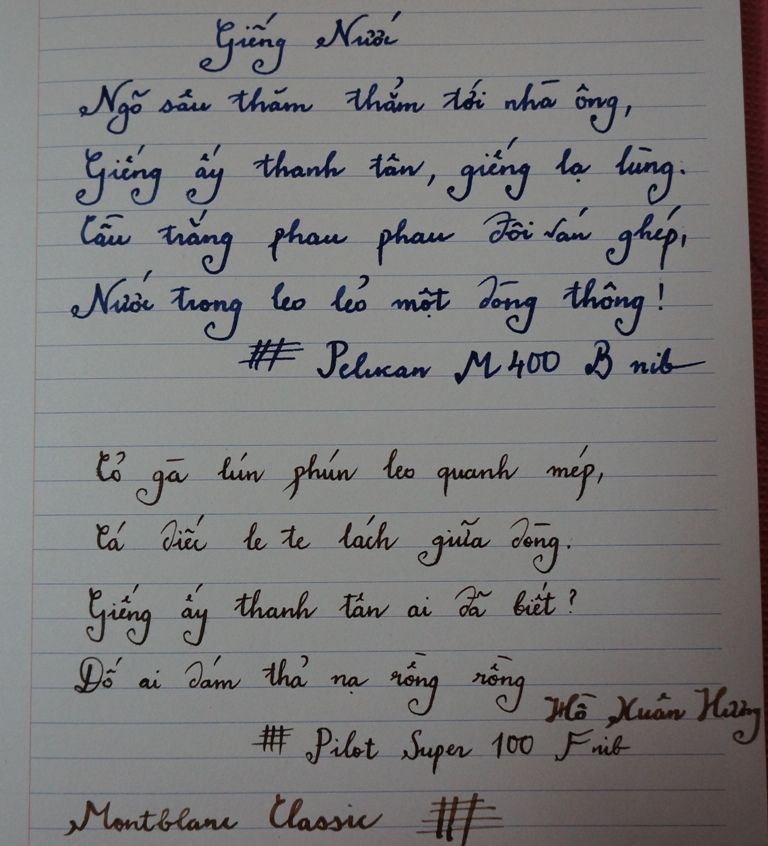 Giếng Nước
Ngõ sâu thăm thẳm tới nhà ông,
Giếng ấy thanh tân, giếng lạ lùng.
Cầu trắng phau phau đôi ván ghép,
Nước trong leo lẻo một dòng thông!
## Pelikan M400 B nib
Cỏ gà lún phún leo quanh mép,
Cá diếc le te lách giữa dòng.
Giếng ấy thanh tân ai đã biết?
Đố ai dám thả nạ rồng rồng
Hồ Xuân Hương
## Pilot Super 100 F nib
Montblanc Classic ##